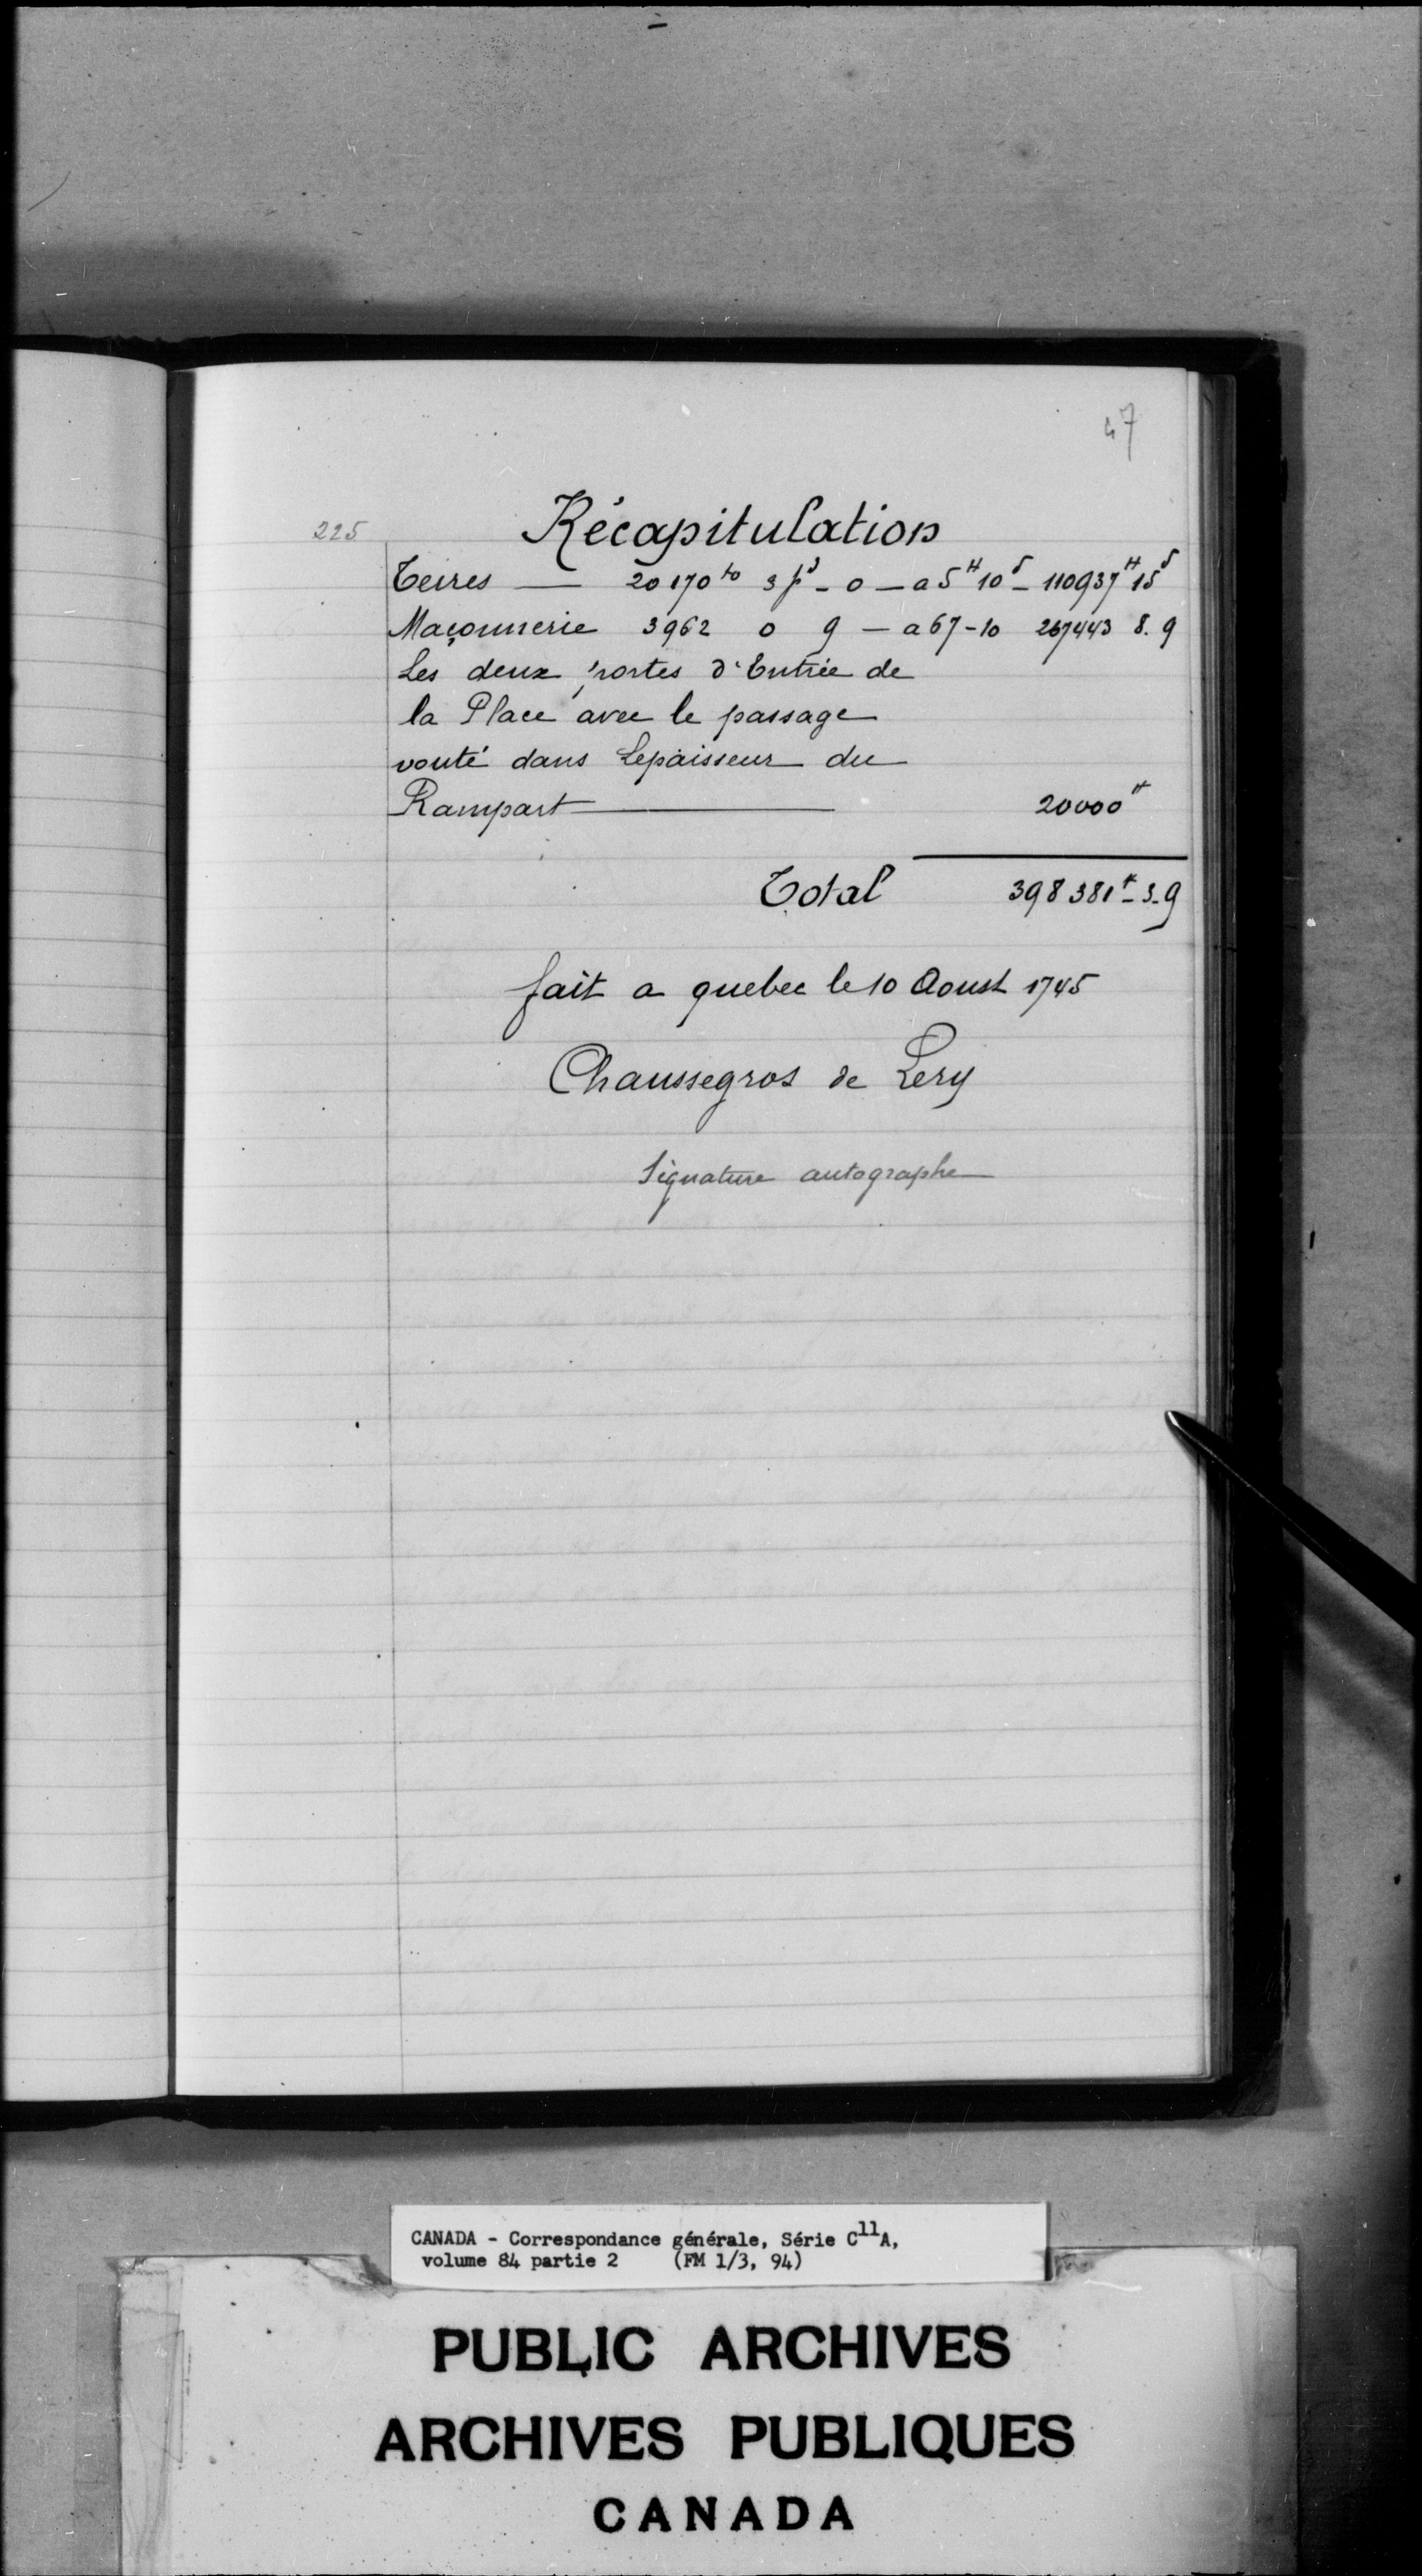 47
225
Récapitulation
Terres — 20170 to 3 ps - o — a 5 ₶ 10 s - 110937 ₶ 15 s
Maçonnerie 3962 o 9 — a 67-10 267443 8. 9
Les deux portes d'Entrée de
la Place avec le passage
vouté dans Lepaisseur du
Rampart — 20000 ₶
Total 398381 ₶ - 3 - 9
fait a quebec le 10 Aoust 1745
Chaussegros de Lery
Signature autographe
CANADA - Correspondance générale, Série C11A,
volume 84 partie 2 (FM 1/3, 94)
PUBLIC ARCHIVES
ARCHIVES PUBLIQUES
CANADA